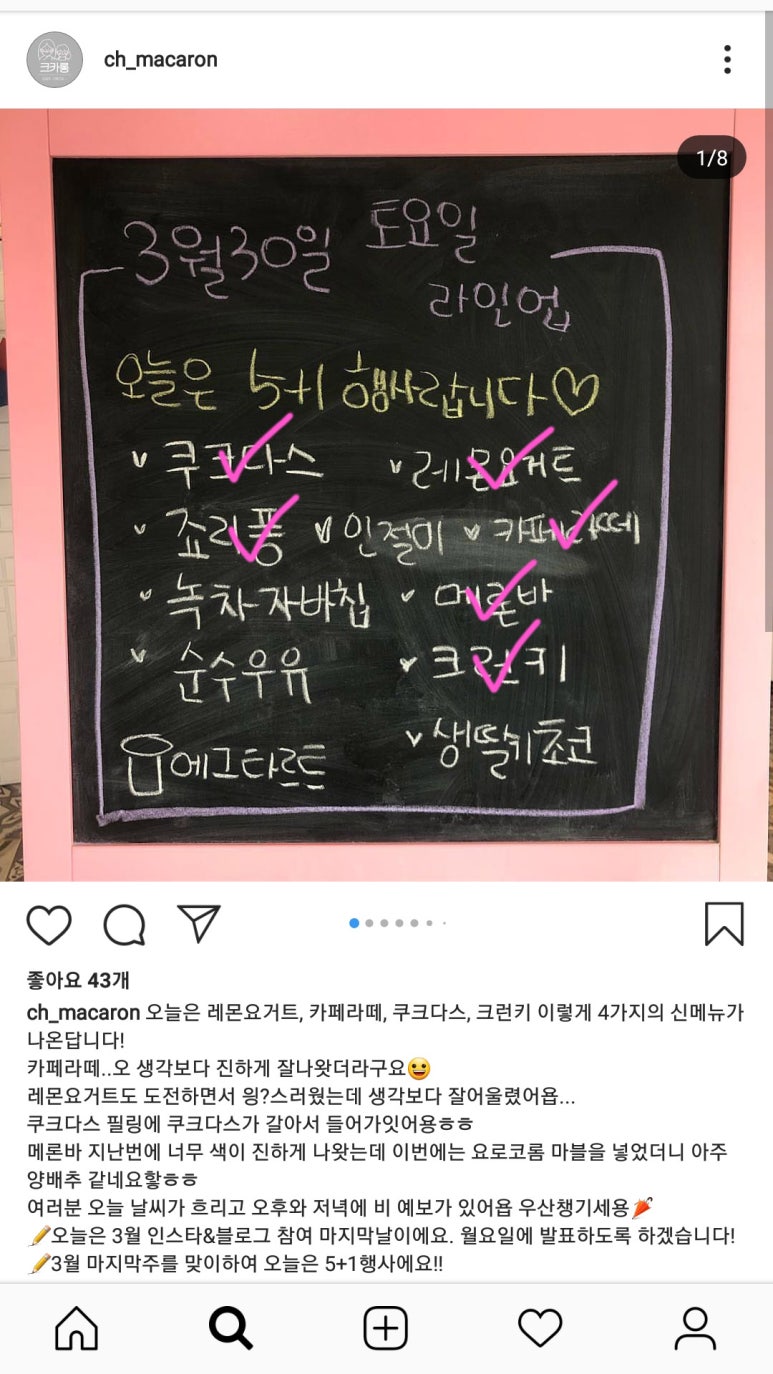 크카롱
ch_macaron
1/8
3월30일 토요일
라인업
오늘은 5+1 행사랍니다♡
쿠크다스 레몬요거트
죠리퐁 인절미 카페라떼
녹차자바칩 메론바
순수우유 크런키
에그타르트 생딸기초코
좋아요 43개
ch_macaron 오늘은 레몬요거트, 카페라떼, 쿠크다스, 크런키 이렇게 4가지의 신메뉴가
나온답니다!
카페라떼..오 생각보다 진하게 잘나왓더라구요😀
레몬요거트도 도전하면서 읭?스러웠는데 생각보다 잘어울렸어욥...
쿠크다스 필링에 쿠크다스가 갈아서 들어가잇어용ㅎㅎ
메론바 지난번에 너무 색이 진하게 나왓는데 이번에는 요로코롬 마블을 넣었더니 아주
양배추 같네요핳ㅎㅎ
여러분 오늘 날씨가 흐리고 오후와 저녁에 비 예보가 있어욥 우산챙기세용🌂
✏️오늘은 3월 인스타&블로그 참여 마지막날이에요. 월요일에 발표하도록 하겠습니다!
✏️3월 마지막주를 맞이하여 오늘은 5+1행사에요!!